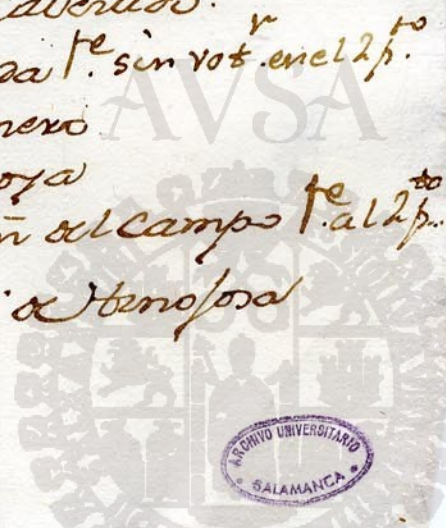 da f.e sin vot.r en el 2 p.to
nero
oza
n̄ del campo f.e al 2 p.to
de Hinojosa
AVSA
ARCHIVO UNIVERSITARIO
SALAMANCA